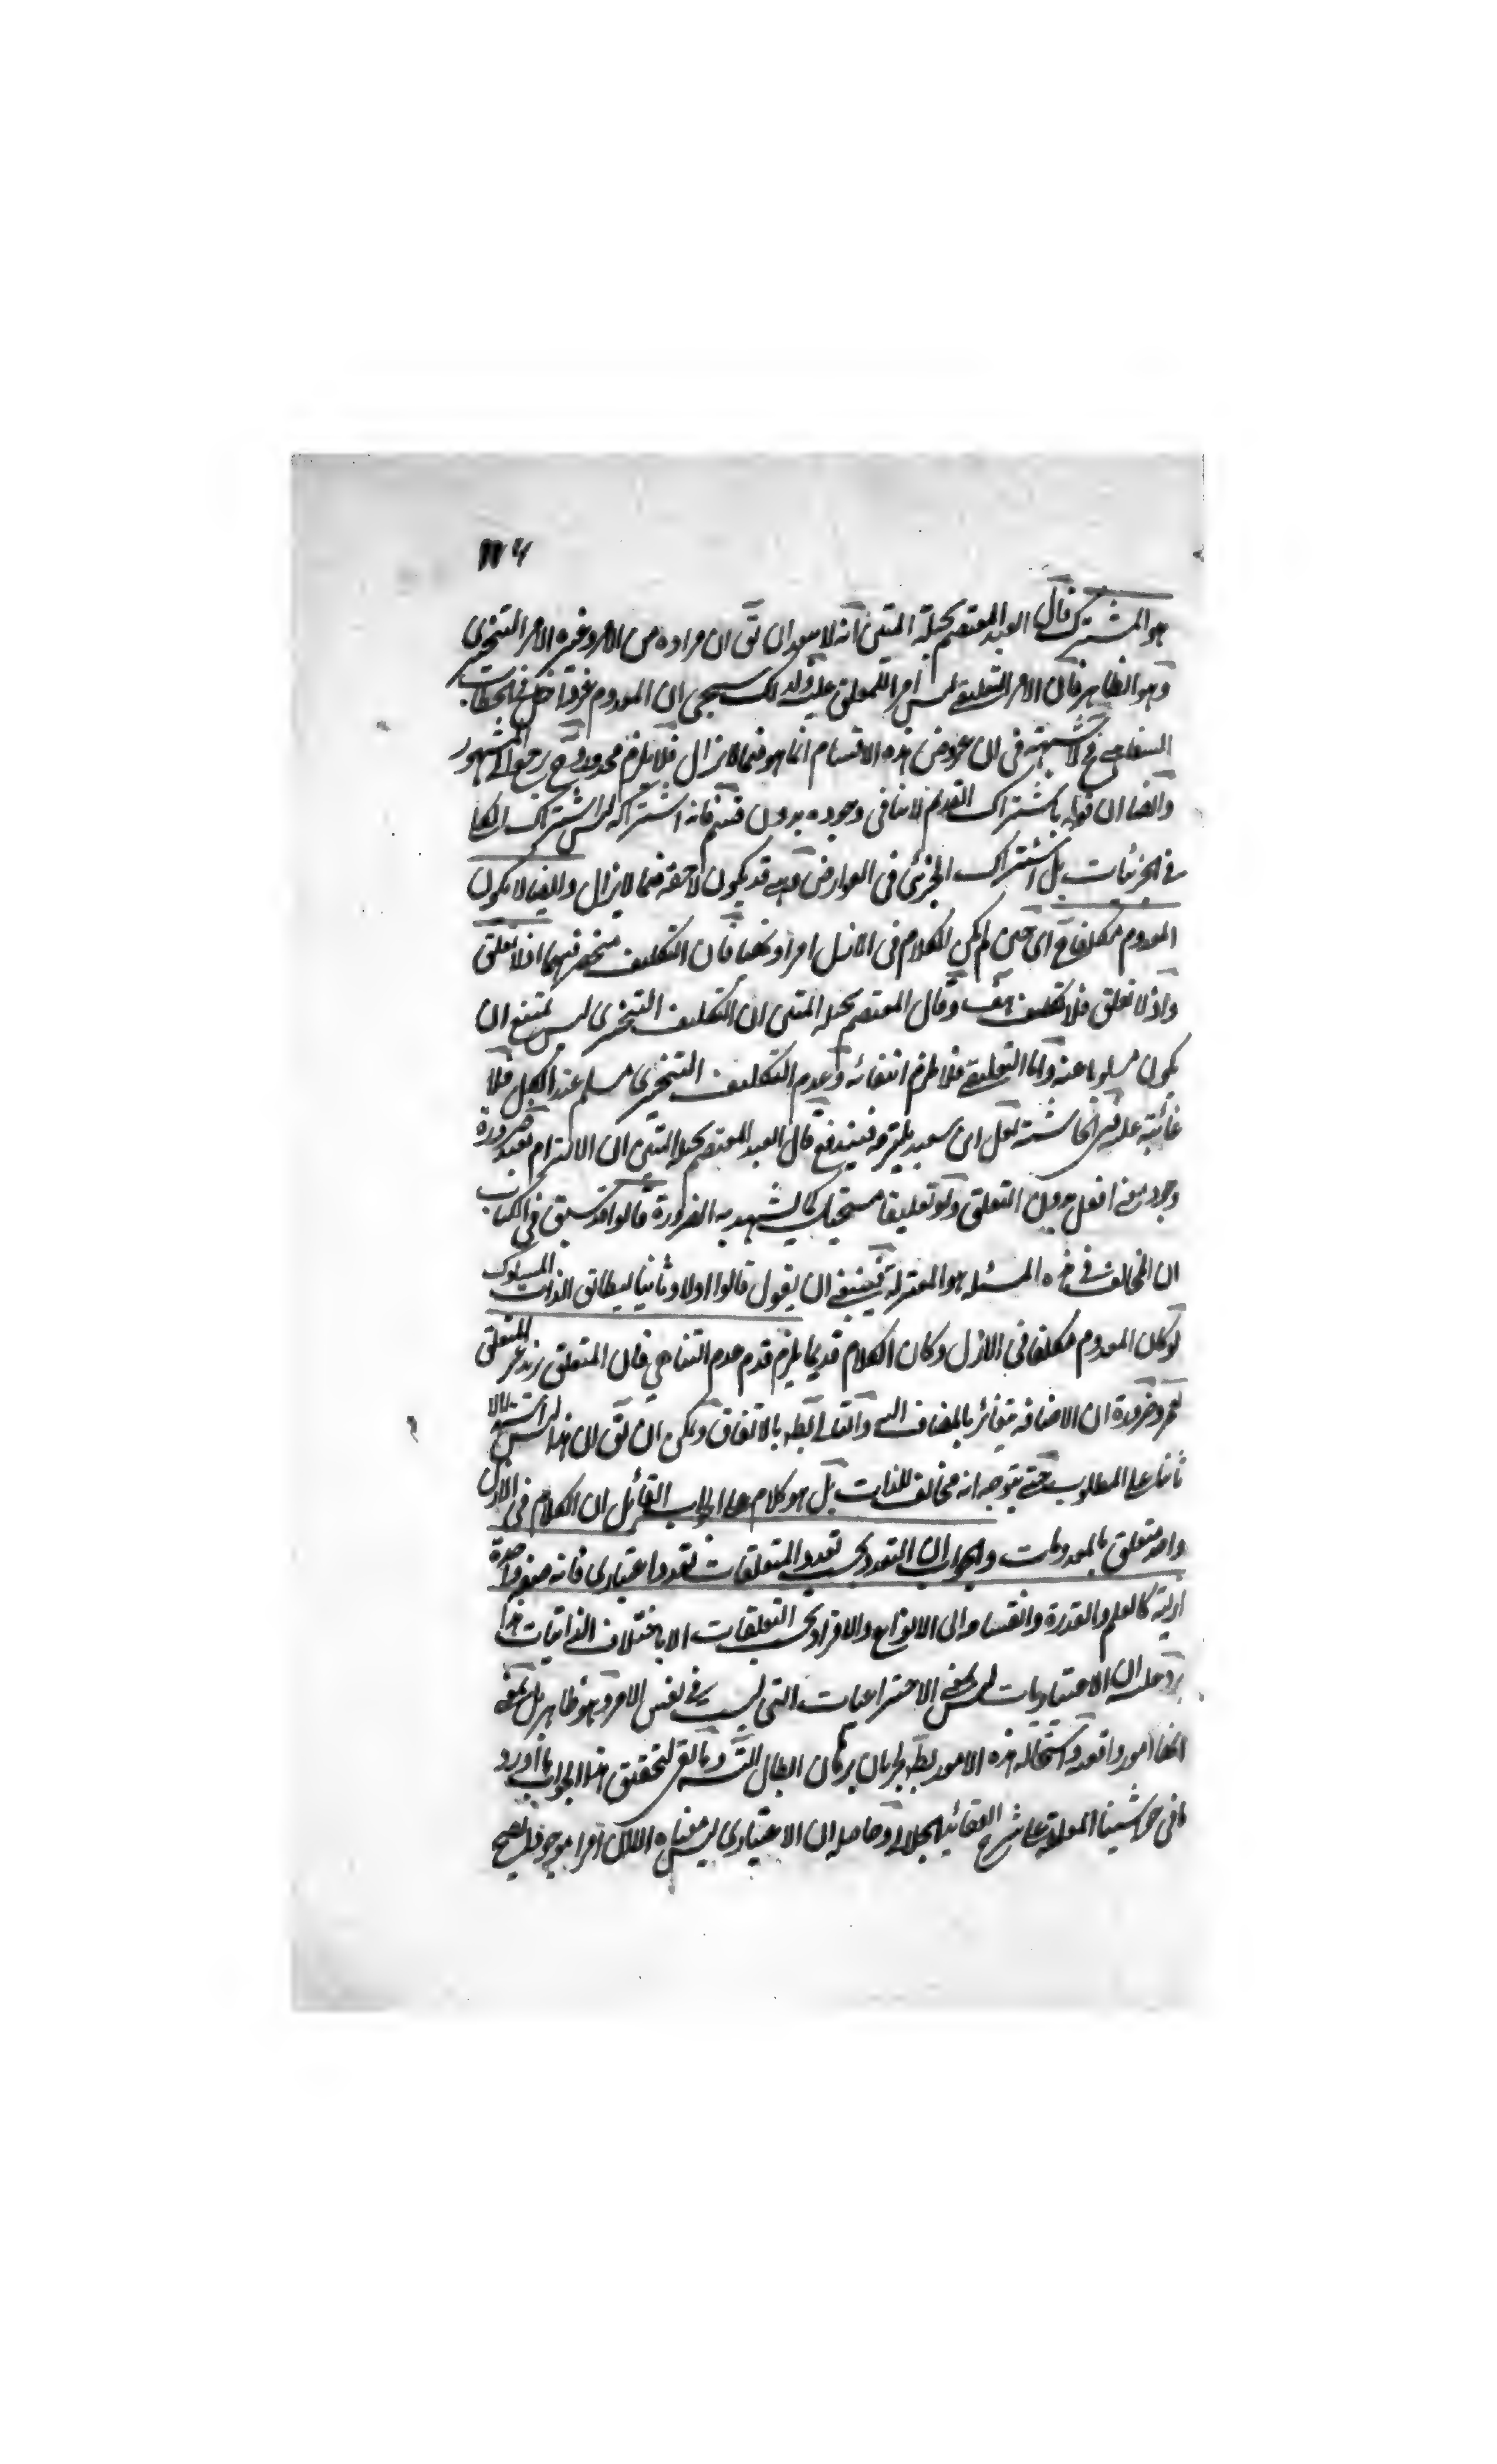 هو المشترك قال العبد المعتصم بحبله المتين انه لا يبعد ان يق ان مراده من الامر وغيره الامر التنجيزى
وهو الظاهر فان الامر التعليقى ليس امرا للمعلق عليه ولذلك سيجى ان المعدوم غير داخل فى الخطاب
الشفاهى فح لا شبهة فى ان عروض هذه الاقسام انما هو فيما لا يزال فلا يلزم محذور وح يرجع الى المشهور
وايضا ان قوله باشتراك القديم لا ينافى وجوده بدون قسم فانه اشتراكه ليس اشتراك الكلى
فى الجزئيات بل اشتراك الجزئى فى العوارض وهى قد يكون لاحقة فيما لا يزال وايضا لا يكون
المعدوم مكلفا ح اى حين لم يكن الكلام فى الازل امرا ونهيا فان التكليف منحصر فيهما اذ لا تعلق
واذ لا تعلق فلا تكليف هف وقال المعتصم بحبله المتين ان التكليف التنجيزى ليس بممتنع ان
يكون مسلوبا عنه واما التعليقى فلا يلزم انتفائه وعدم التكليف التنجيزى مسلم عند الكل فلا
غائبة عليه فى الحاشية لعل ابن سعيد يلتزمه فيندفع قال العبد المعتصم بحبله المتين ان الالتزام بعيد ضرورة
وجود معنى افعل بدون التعلق ولو تعليقا مستحيل كما يشهد به الضرورة قالوا قد سبق فى الكتاب
ان المخالف فى هذه المسئلة هو المعتزلة فينبغى ان يقول قالوا اولا وثانيا ليطابق الذات المسلوك
لو كان المعدوم مكلفا فى الازل وكان الكلام قديما يلزم قدم عدم التناهى فان المتعلق بزيد غير المتعلق
لعمرو ضرورة ان الاضافة متغائر بالمضاف اليه والتالى بط بالاتفاق ويمكن ان يق ان هذا ليس استدلالا
ثانيا على المطلوب حتى يتوجه انه مخالف للذات بل هو كلام على القائل ان الكلام فى الازل
واحد متعلق بالمعدومات والجواب ان التعدد بحسب تعدد المتعلقات تعدد اعتبارى فانه صفة واحدة
ازلية كالعلم والقدرة وانقسامه الى الانواع والافراد بحسب التعلقات لا باختلاف الذاتيات هذا
يرد عليه ان الاعتباريات ليس بمعنى الاختراعيات التى ليست فى نفس الامر وهو ظاهر بل بمعنى
انها امور واقعة واستحالة هذه الامور بط بجريان برهان ابطال التس وما يق لتحقيق هذا الجواب ما اورد
ما فى حواشينا المعلقة على شرح العقائد الجلالى وحاصله ان الاعتبارى ليس معناه الا ان امرا موجودا يصح